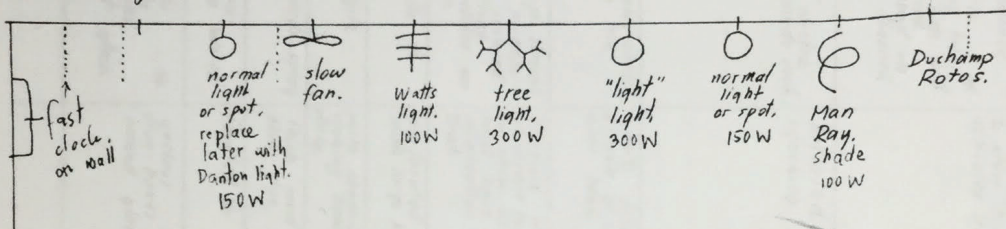 fast
clock.
on wall
normal
light
or spot,
replace
later with
Danton light.
150W
slow
fan.
Watts
light.
100W
tree
light,
300W
"light"
light,
300W
normal
light
or spot,
150W
Man
Ray.
shade
100W
Duchamp
Rotos.